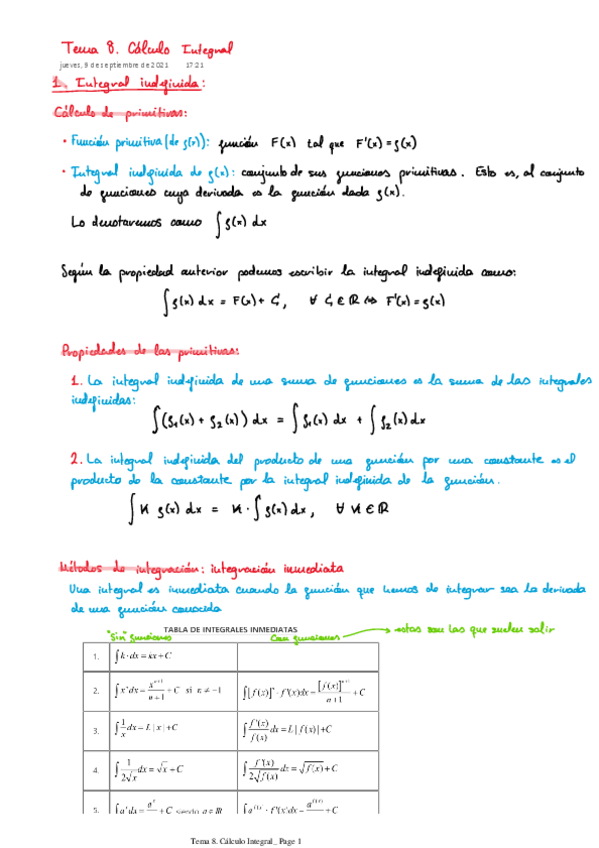 Tema 8. Cálculo Integral
jueves, 9 de septiembre de 2021 17:21
1. Integral indefinida:
Cálculo de primitivas:
• Función primitiva (de f(x)): función F(x) tal que F'(x) = f(x)
• Integral indefinida de f(x): conjunto de sus funciones primitivas. Esto es, al conjunto
de funciones cuya derivada es la función dada f(x).
Lo denotaremos como ∫ f(x) dx
Según la propiedad anterior podemos escribir la integral indefinida como:
∫ f(x) dx = F(x) + C, ∀ C ∈ ℝ ⇔ F'(x) = f(x)
Propiedades de las primitivas:
1. La integral indefinida de una suma de funciones es la suma de las integrales
indefinidas:
∫ (f₁(x) + f₂(x)) dx = ∫ f₁(x) dx + ∫ f₂(x) dx
2. La integral indefinida del producto de una función por una constante es el
producto de la constante por la integral indefinida de la función.
∫ K f(x) dx = K · ∫ f(x) dx, ∀ K ∈ ℝ
Métodos de integración: integración inmediata
Una integral es inmediata cuando la función que hemos de integrar sea la derivada
de una función conocida
TABLA DE INTEGRALES INMEDIATAS
"Sin" funciones Con funciones → estas son las que suelen salir
1. ∫ k·dx = kx + C
2. ∫ xⁿ dx = xⁿ⁺¹/(n+1) + C si n ≠ −1 ∫ [f(x)]ⁿ · f'(x)dx = [f(x)]ⁿ⁺¹/(n+1) + C
3. ∫ 1/x dx = L|x| + C ∫ f'(x)/f(x) dx = L|f(x)| + C
4. ∫ 1/(2√x) dx = √x + C ∫ f'(x)/(2√f(x)) dx = √f(x) + C
5. ∫ aˣ dx = aˣ + C siendo a ∈ ℝ ∫ a^f(x) · f'(x)dx = a^f(x) + C
Tema 8. Cálculo Integral_ Page 1